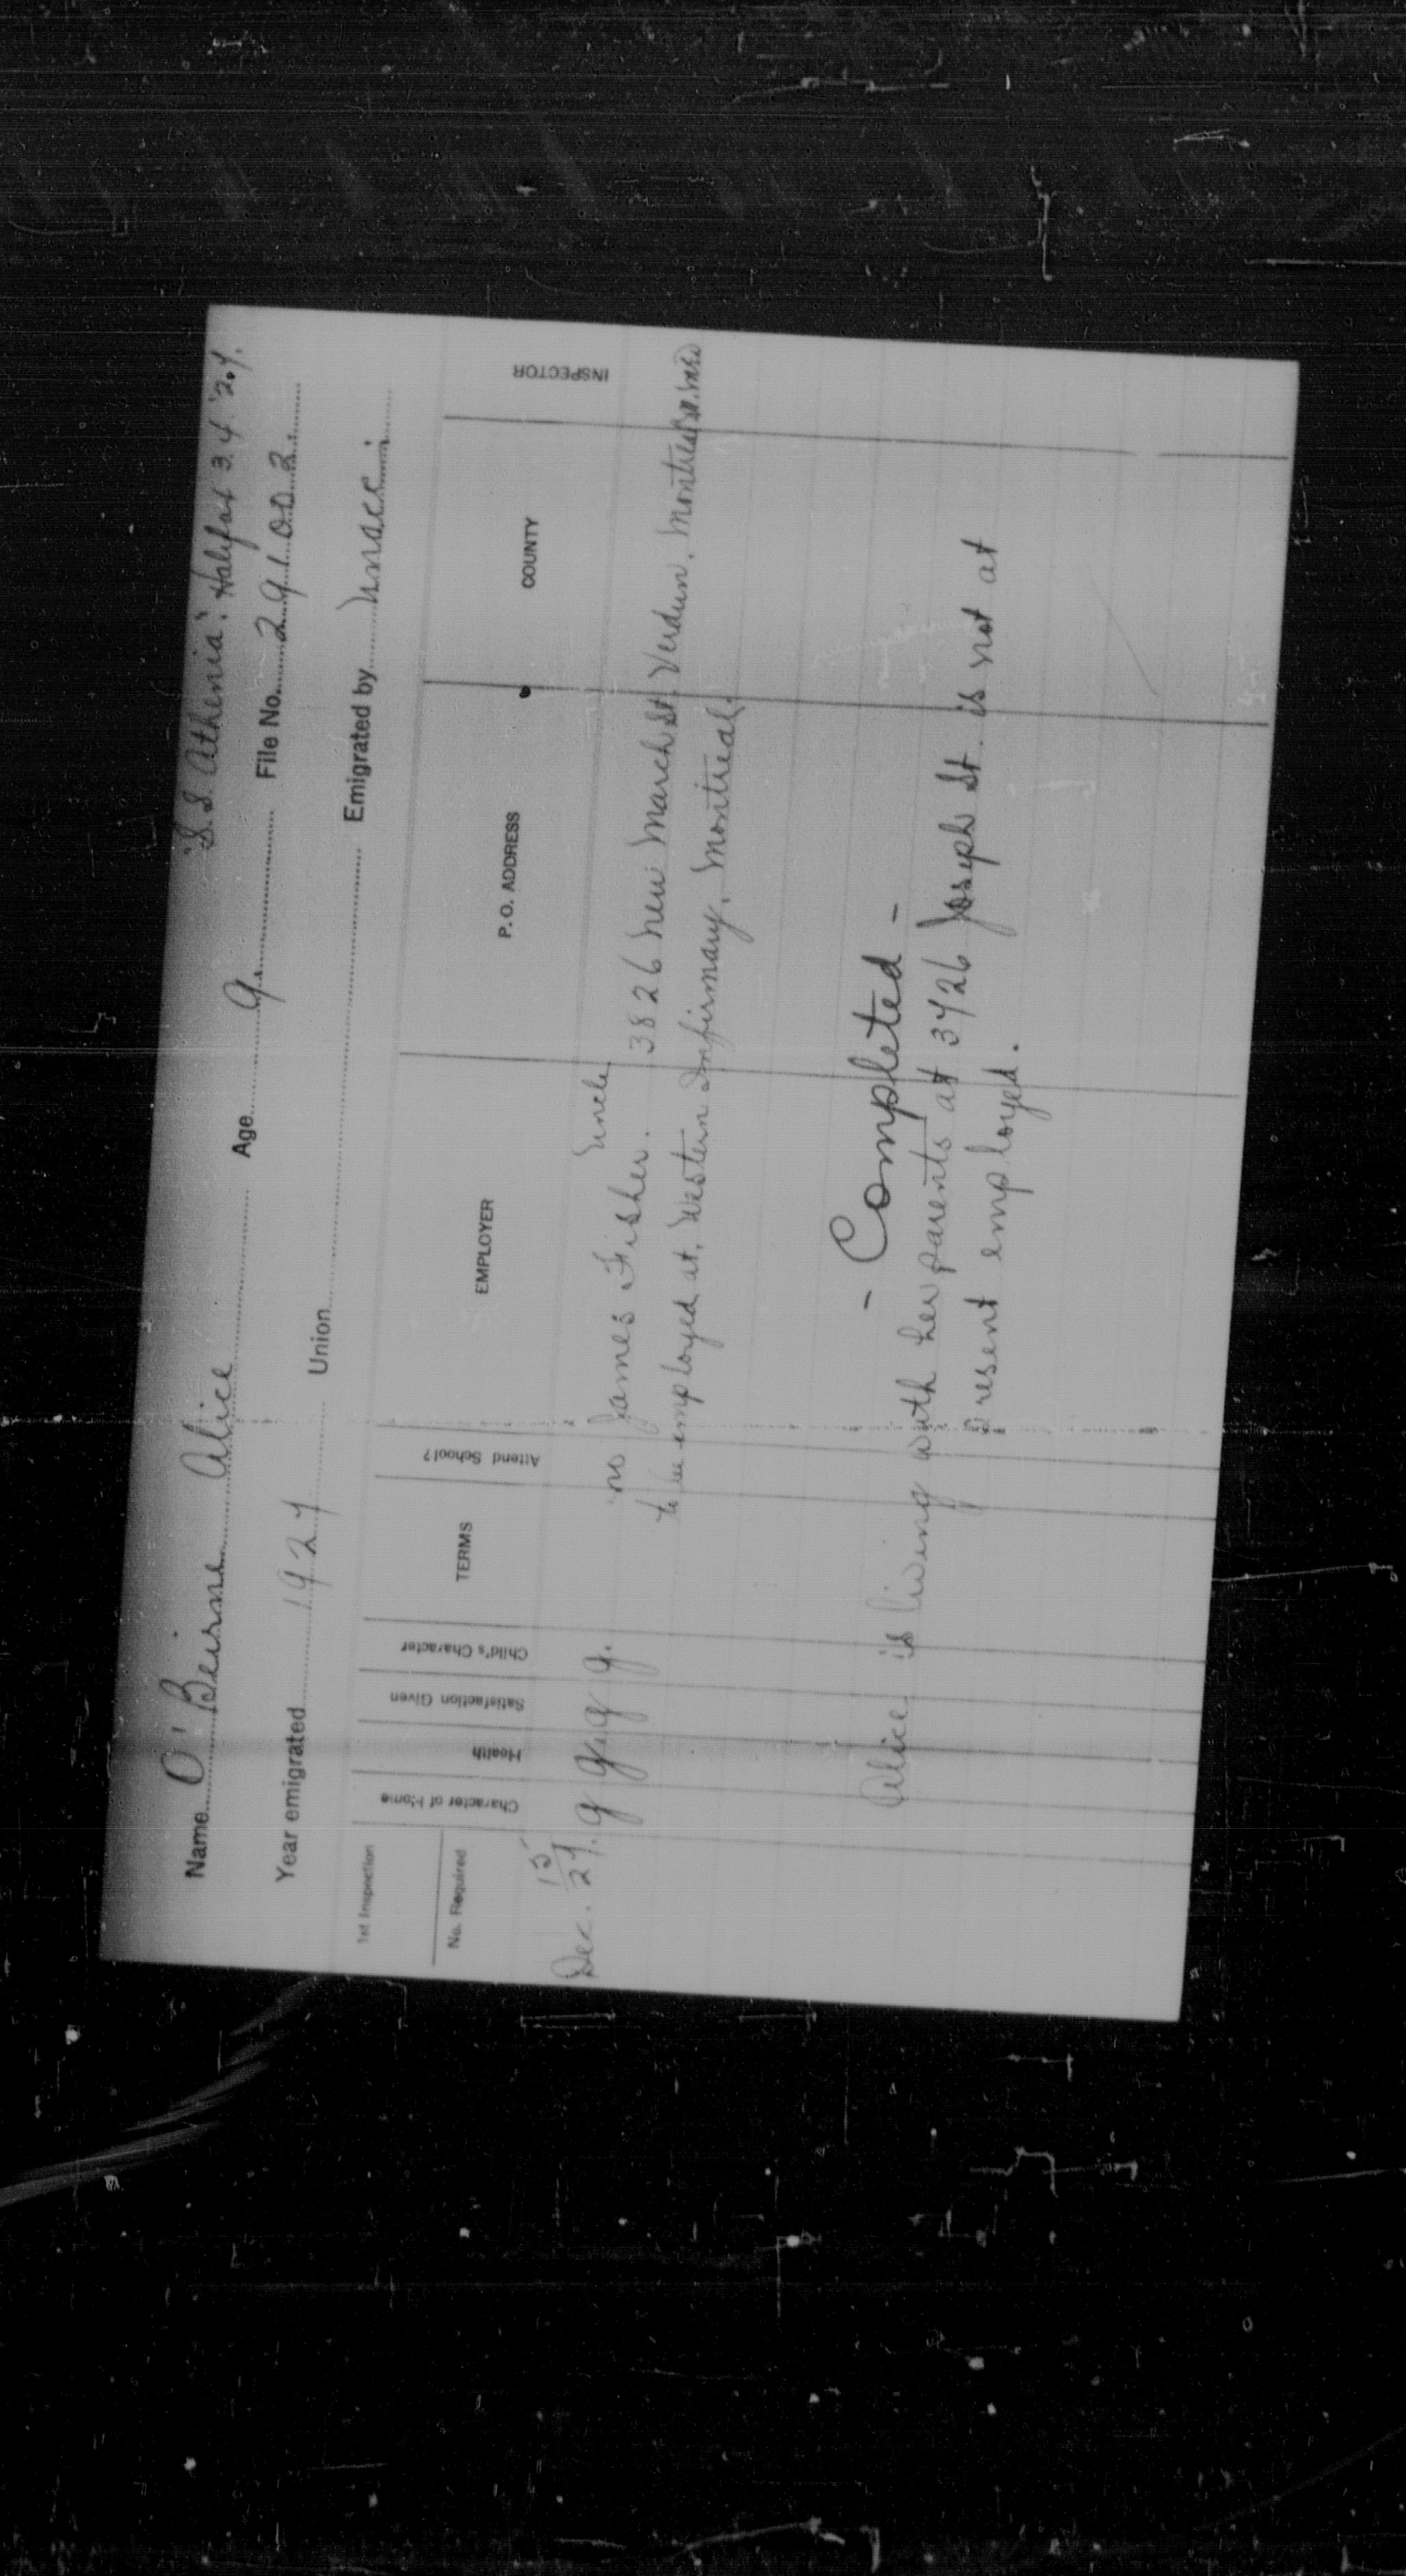 "S.S. Athenia". Halifax 3.4.'27.
Name O'Beirne Alice Age 9. File No. 291002.
Year emigrated 1927 Union Emigrated by
1st Inspection
No. Required
Character of Home Health Satisfaction Given Child's Character TERMS Attend School? EMPLOYER P.O. ADDRESS COUNTY INSPECTOR
Uncle
Dec. 15/27. g g g g. no James Fisher. 3826 New March St. Verdun. Montreal
to be employed at. Western Infirmary. Montreal.
- Completed -
Alice is living with her parents at 3726 Joseph St. is not at
present employed.